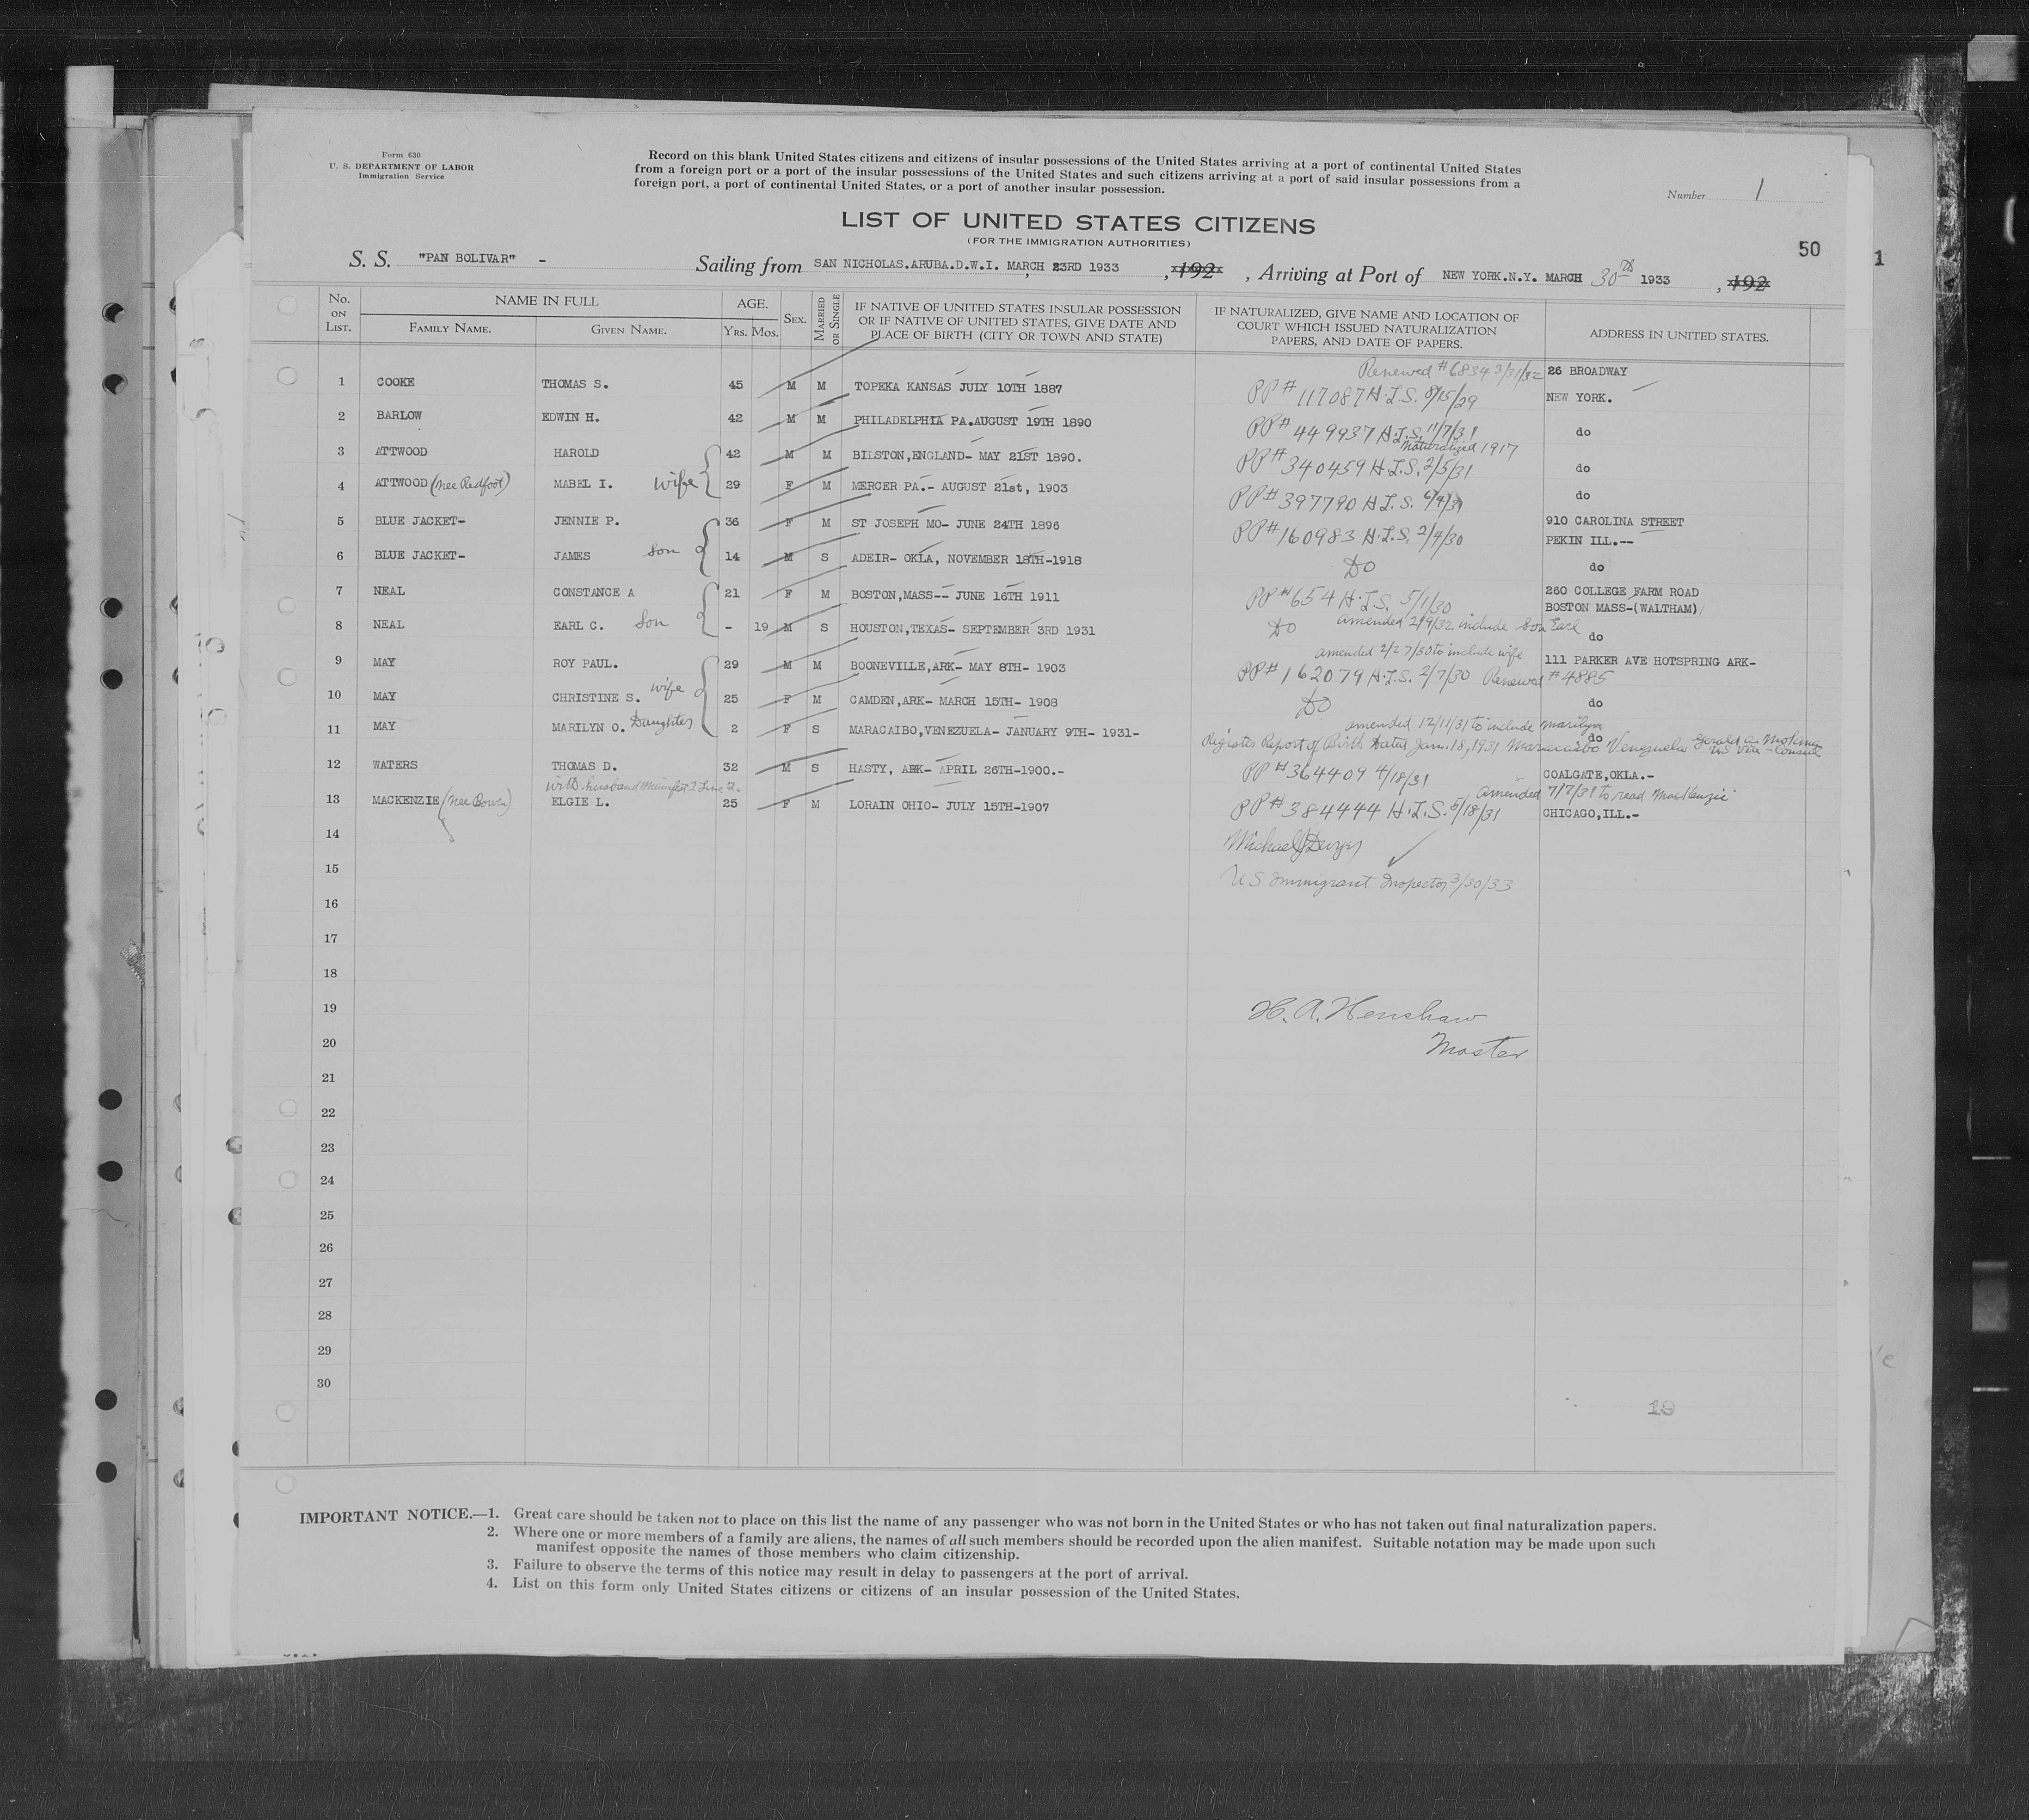 Form 630
U. S. DEPARTMENT OF LABOR
Immigration Service
Record on this blank United States citizens and citizens of insular possessions of the United States arriving at a port of continental United States
from a foreign port or a port of the insular possessions of the United States and such citizens arriving at a port of said insular possessions from a
foreign port, a port of continental United States, or a port of another insular possession.
Number 1
LIST OF UNITED STATES CITIZENS
(FOR THE IMMIGRATION AUTHORITIES)
50
1
S. S. "PAN BOLIVAR" - Sailing from SAN NICHOLAS.ARUBA.D.W.I. MARCH 23RD 1933, 192 , Arriving at Port of NEW YORK.N.Y. MARCH 30th 1933 , 192
No. ON LIST. NAME IN FULL FAMILY NAME. GIVEN NAME. AGE. Yrs. Mos. SEX. MARRIED OR SINGLE IF NATIVE OF UNITED STATES INSULAR POSSESSION OR IF NATIVE OF UNITED STATES, GIVE DATE AND PLACE OF BIRTH (CITY OR TOWN AND STATE) IF NATURALIZED, GIVE NAME AND LOCATION OF COURT WHICH ISSUED NATURALIZATION PAPERS, AND DATE OF PAPERS. ADDRESS IN UNITED STATES.
Renewed #6834 3/31/32 26 BROADWAY
1 COOKE THOMAS S. 45 M M TOPEKA KANSAS JULY 10TH 1887 PP# 117087 H.I.S. 8/15/29 NEW YORK.
2 BARLOW EDWIN H. 42 M M PHILADELPHIA PA.AUGUST 19TH 1890 PP# 449937 H.I.S. 11/7/31 do
Naturalized 1917
3 ATTWOOD HAROLD 42 M M BILSTON,ENGLAND- MAY 21ST 1890. PP# 340459 H.I.S. 2/5/31 do
4 ATTWOOD (nee Redfoot) MABEL I. wife 29 F M MERCER PA.- AUGUST 21st, 1903 PP# 397790 H.I.S. 6/4/31 do
5 BLUE JACKET- JENNIE P. 36 F M ST JOSEPH MO- JUNE 24TH 1896 PP# 160983 H.I.S. 2/4/30 910 CAROLINA STREET
PEKIN ILL.--
6 BLUE JACKET- JAMES Son 14 M S ADEIR- OKLA, NOVEMBER 18TH-1918 Do do
7 NEAL CONSTANCE A 21 F M BOSTON,MASS-- JUNE 16TH 1911 PP# 654 H.I.S. 5/1/30 260 COLLEGE FARM ROAD
BOSTON MASS-(WALTHAM)
amended 2/9/32 include Son Earl
8 NEAL EARL C. Son - 19 M S HOUSTON,TEXAS- SEPTEMBER 3RD 1931 Do do
amended 2/27/30 to include wife
9 MAY ROY PAUL. 29 M M BOONEVILLE,ARK- MAY 8TH- 1903 PP# 162079 H.I.S. 2/7/30 Renewed #4885 111 PARKER AVE HOTSPRING ARK-
10 MAY CHRISTINE S. wife 25 F M CAMDEN,ARK- MARCH 15TH- 1908 Do do
amended 12/11/31 to include Marilyn
11 MAY MARILYN O. Daughter 2 F S MARACAIBO,VENEZUELA- JANUARY 9TH- 1931- do
Register Report of Birth dated Jan. 18, 1931 Maracaibo Venezuela Gerald A. US Vice-Consul
12 WATERS THOMAS D. 32 M S HASTY, ARK- APRIL 26TH-1900.- PP# 364409 4/18/31 COALGATE,OKLA.-
with husband Manifest 2 Line 2. amended 7/7/31 to read MacKenzie
13 MACKENZIE (nee Bowen) ELGIE L. 25 F M LORAIN OHIO- JULY 15TH-1907 PP# 384444 H.I.S. 5/18/31 CHICAGO,ILL.-
14 Michael J Dwyer
15 U.S. Immigrant Inspector 3/30/33
16
17
18
19 H. A. Henshaw
20 Master
21
22
23
24
25
26
27
28
29
30
19
IMPORTANT NOTICE.—1. Great care should be taken not to place on this list the name of any passenger who was not born in the United States or who has not taken out final naturalization papers.
2. Where one or more members of a family are aliens, the names of all such members should be recorded upon the alien manifest. Suitable notation may be made upon such
manifest opposite the names of those members who claim citizenship.
3. Failure to observe the terms of this notice may result in delay to passengers at the port of arrival.
4. List on this form only United States citizens or citizens of an insular possession of the United States.